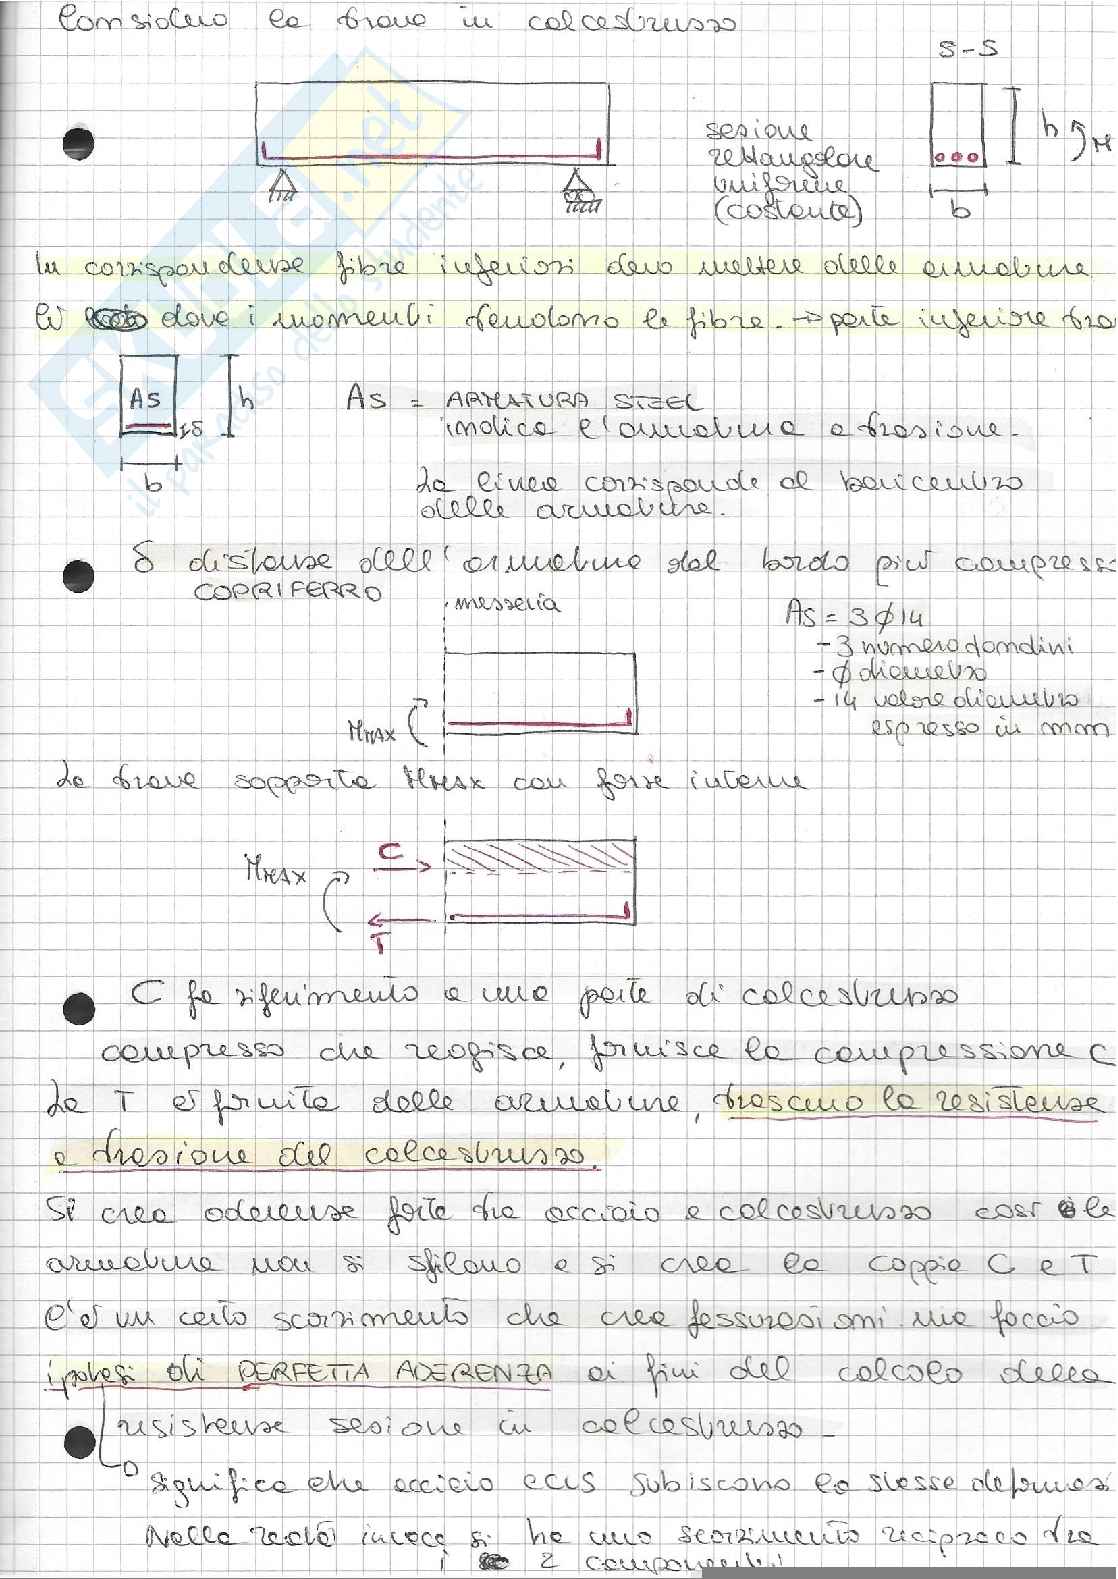 Considero la trave in calcestruzzo
S-S
sezione
rettangolare
uniforme
(costante)
h
M
b
In corrispondenza fibre inferiori devo mettere delle armature
lì dove i momenti tendono le fibre. → parte inferiore tra
As
h
δ
b
As = ARMATURA STEEL
indica l'armatura a trazione.
La linea corrisponde al baricentro
delle armature.
δ distanza dell'armatura dal bordo più compresso
COPRIFERRO
mezzeria
As = 3 ϕ 14
- 3 numero tondini
- ϕ diametro
- 14 valore diametro
espresso in mm
MMAX
La trave sopporta MMAX con forze interne
C
MMAX
T
C fa riferimento a una parte di calcestruzzo
compresso che reagisce, fornisce la compressione C
La T è fornita dalle armature, trascuro la resistenza
a trazione del calcestruzzo.
Si crea aderenza forte tra acciaio e calcestruzzo così le
armature non si sfilano e si crea la coppia C e T
C'è un certo scorrimento che crea fessurazioni ma faccio
ipotesi di PERFETTA ADERENZA ai fini del calcolo della
resistenza sezione in calcestruzzo -
significa che acciaio e cls subiscono la stessa deformazi
Nella realtà invece si ha uno scorrimento reciproco tra
i 2 componenti
SKUOLA.net
il paradiso dello studente